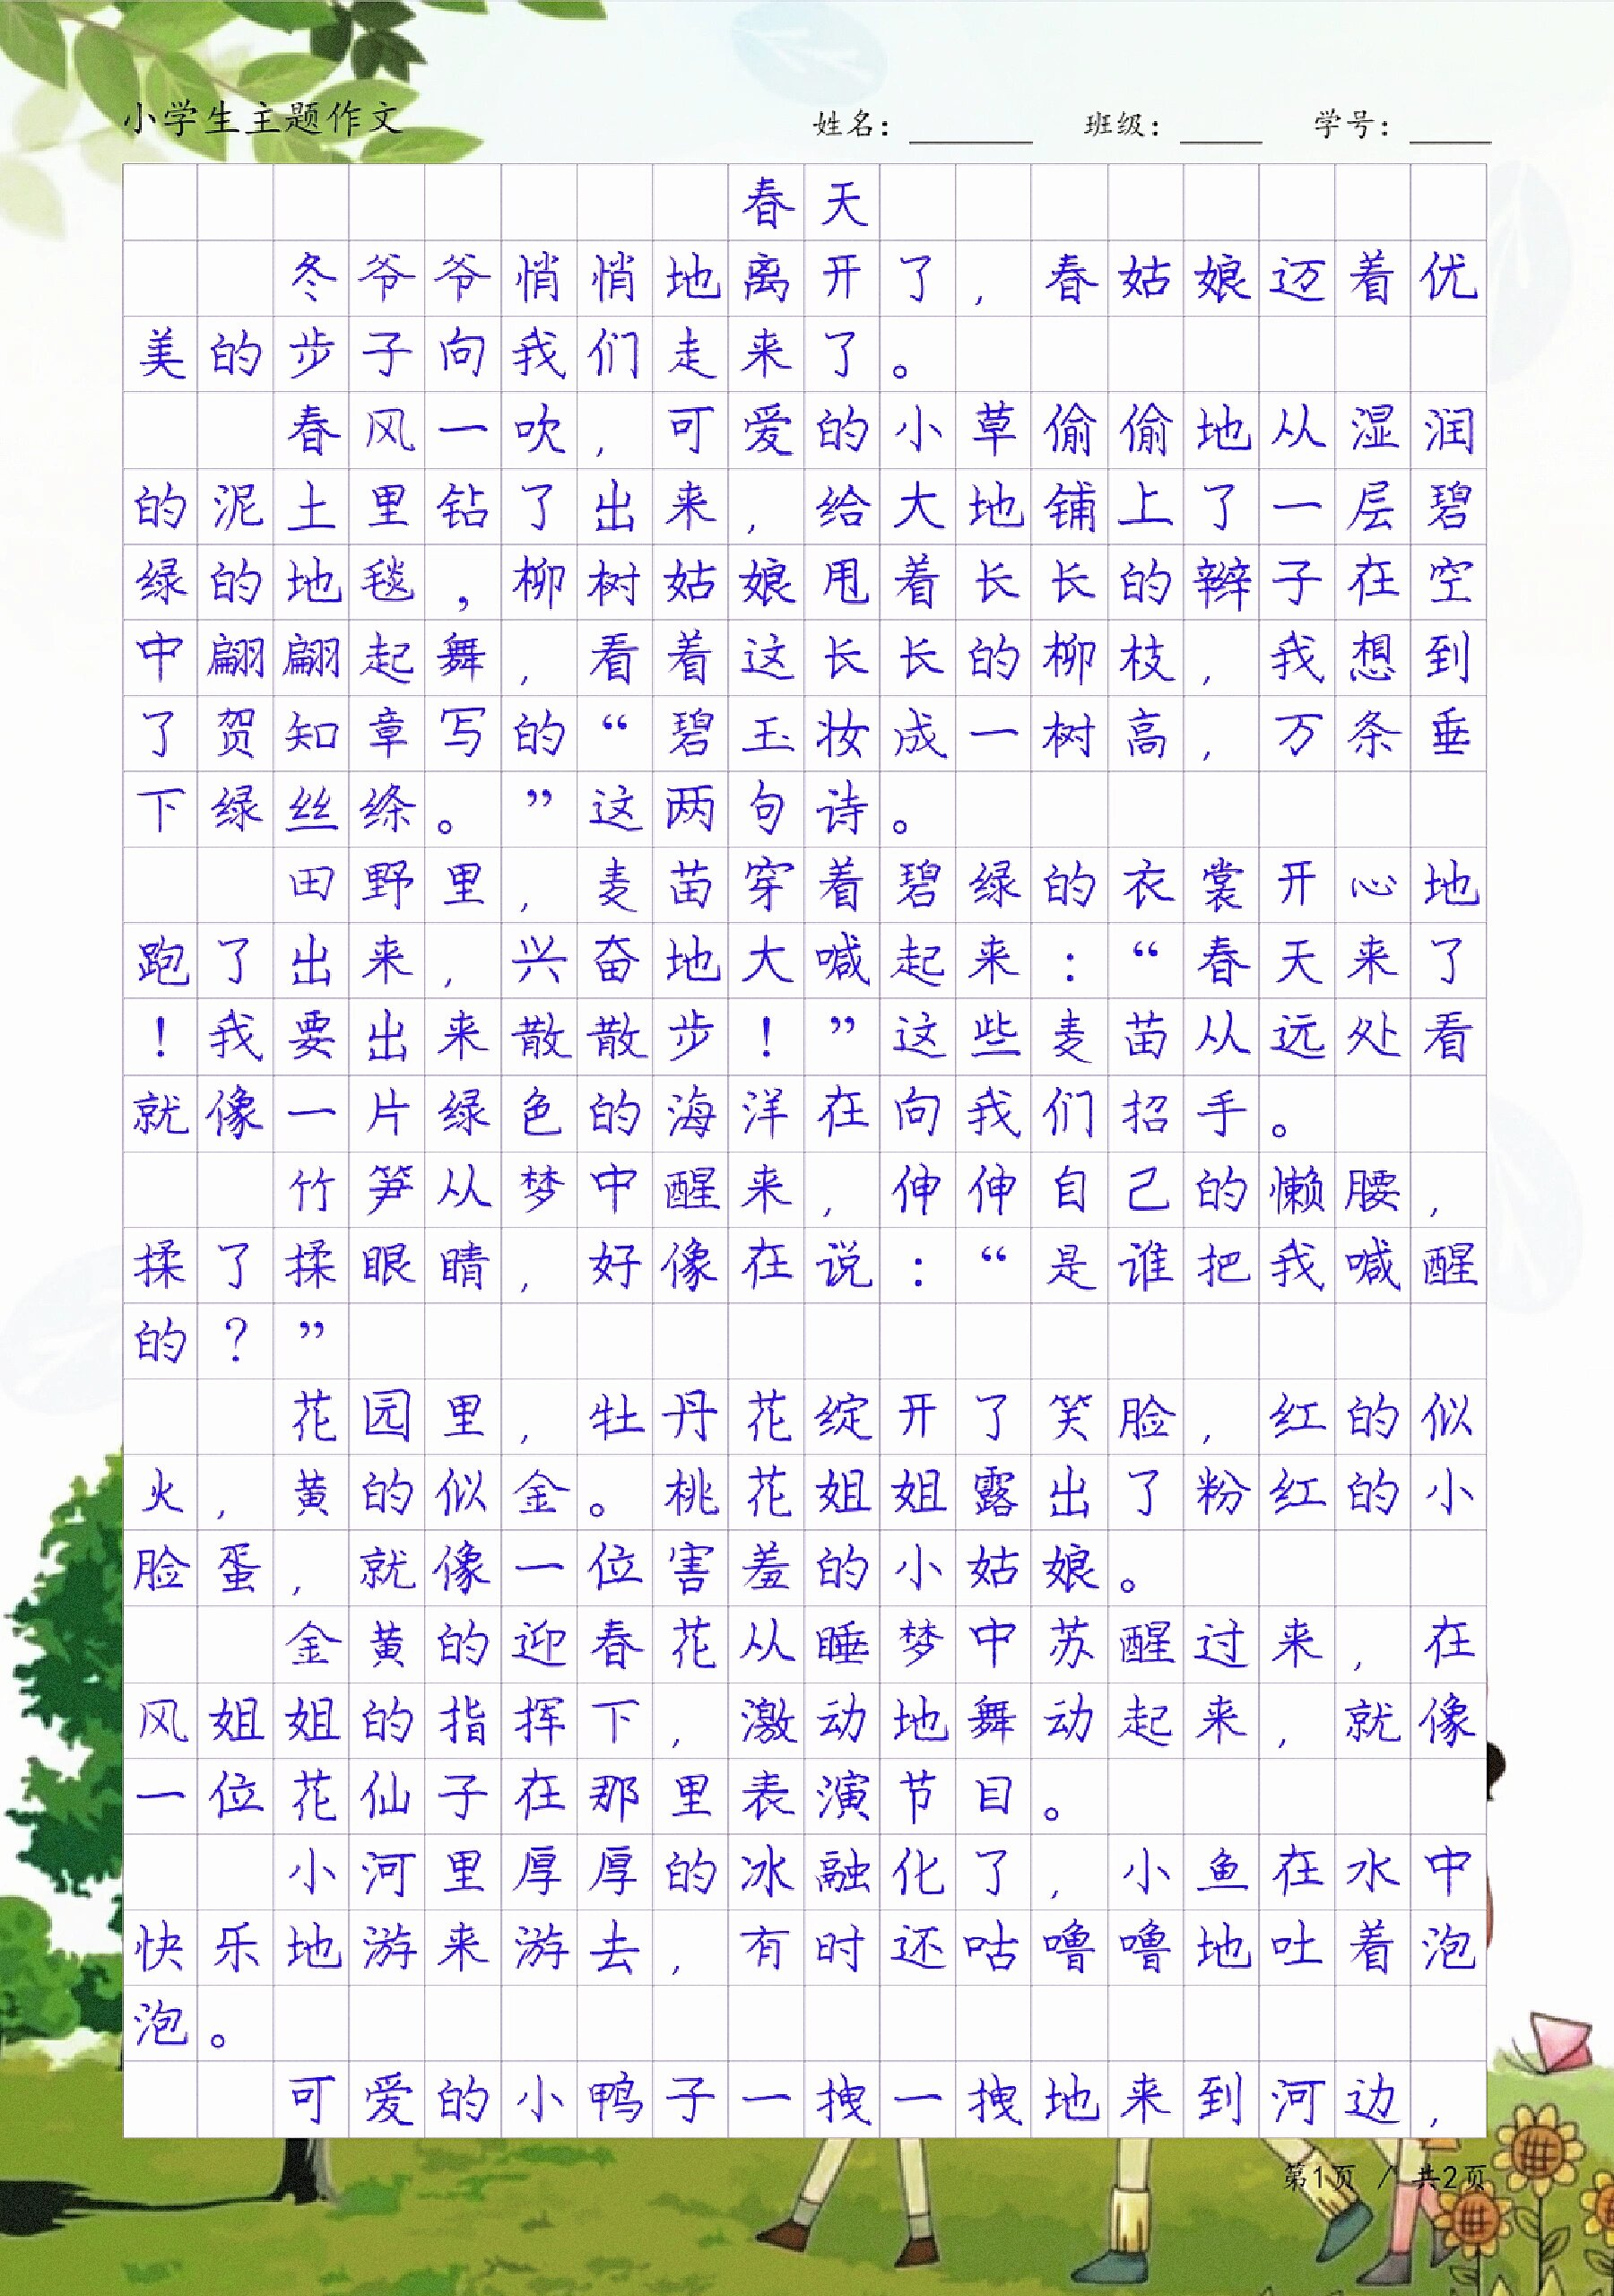 小学生主题作文 姓名：______ 班级：____ 学号：____
春天
冬爷爷悄悄地离开了，春姑娘迈着优
美的步子向我们走来了。
春风一吹，可爱的小草偷偷地从湿润
的泥土里钻了出来，给大地铺上了一层碧
绿的地毯，柳树姑娘甩着长长的辫子在空
中翩翩起舞，看着这长长的柳枝，我想到
了贺知章写的“碧玉妆成一树高，万条垂
下绿丝绦。”这两句诗。
田野里，麦苗穿着碧绿的衣裳开心地
跑了出来，兴奋地大喊起来：“春天来了
！我要出来散散步！”这些麦苗从远处看
就像一片绿色的海洋在向我们招手。
竹笋从梦中醒来，伸伸自己的懒腰，
揉了揉眼睛，好像在说：“是谁把我喊醒
的？”
花园里，牡丹花绽开了笑脸，红的似
火，黄的似金。桃花姐姐露出了粉红的小
脸蛋，就像一位害羞的小姑娘。
金黄的迎春花从睡梦中苏醒过来，在
风姐姐的指挥下，激动地舞动起来，就像
一位花仙子在那里表演节目。
小河里厚厚的冰融化了，小鱼在水中
快乐地游来游去，有时还咕噜噜地吐着泡
泡。
可爱的小鸭子一拽一拽地来到河边，
第1页 / 共2页